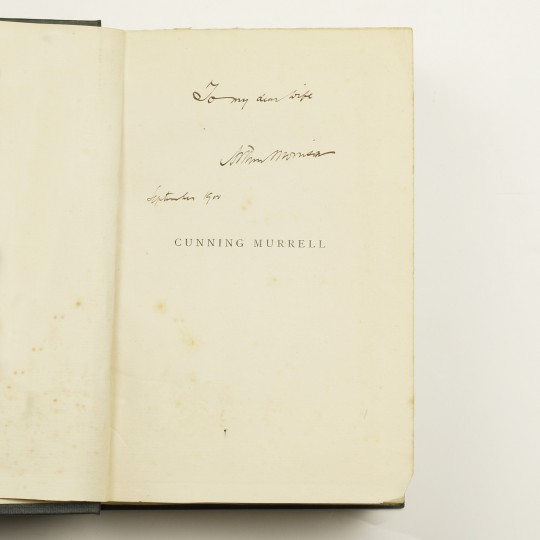 To my dear wife
Arthur Morrison
September 1900
CUNNING MURRELL